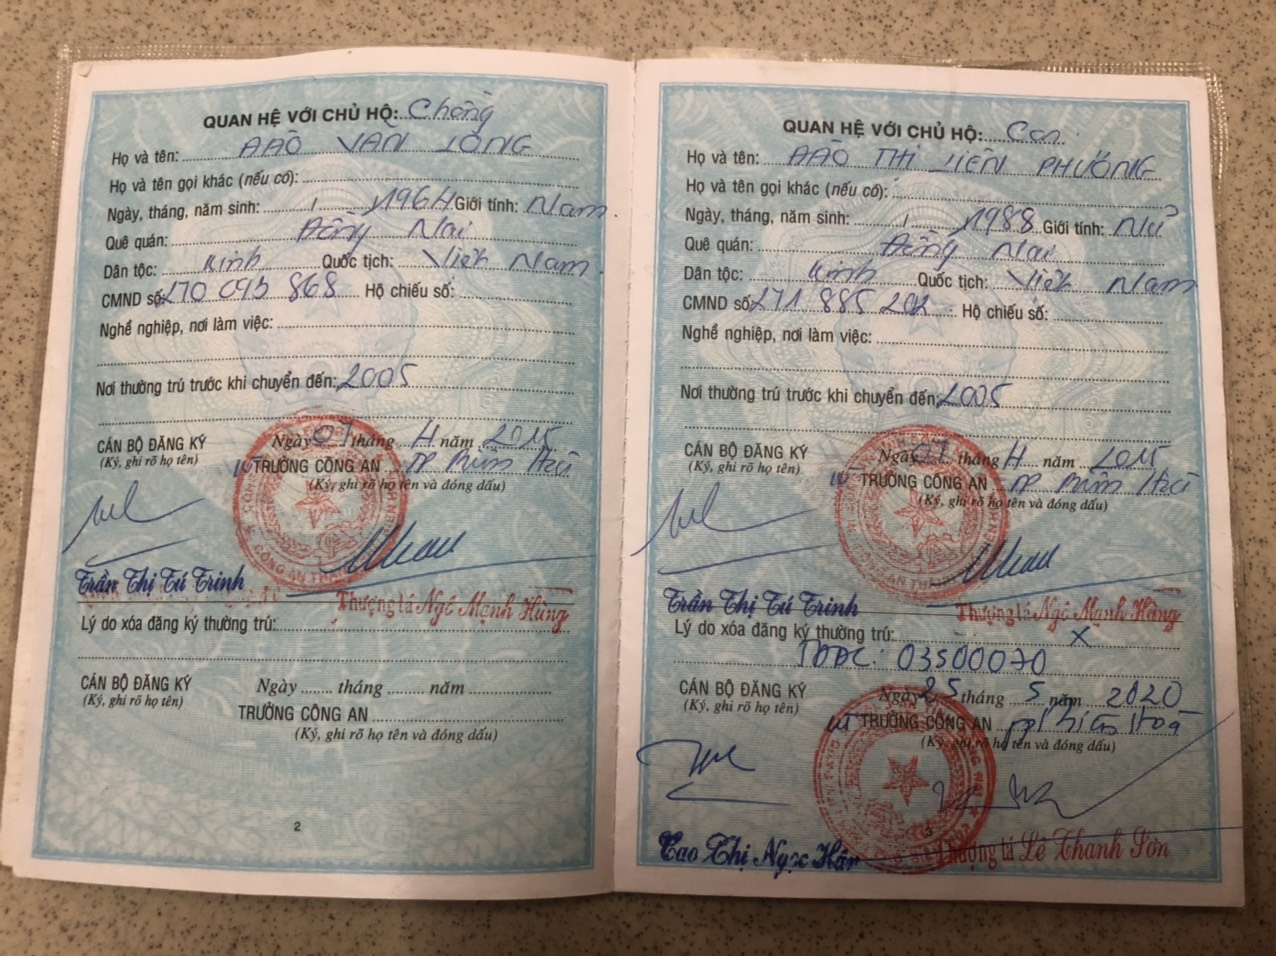 QUAN HỆ VỚI CHỦ HỘ: Chồng
Họ và tên: ĐÀO VĂN LONG
Họ và tên gọi khác (nếu có):
Ngày, tháng, năm sinh: / /1964 Giới tính: Nam
Quê quán: Đồng Nai
Dân tộc: Kinh Quốc tịch: Việt Nam
CMND số: 270 093 868 Hộ chiếu số:
Nghề nghiệp, nơi làm việc:
Nơi thường trú trước khi chuyển đến: 2005
CÁN BỘ ĐĂNG KÝ
(Ký, ghi rõ họ tên)
Ngày 07 tháng 4 năm 2015
TRƯỞNG CÔNG AN TP Biên Hòa
(Ký, ghi rõ họ tên và đóng dấu)
Trần Thị Tú Trinh
Thượng tá Ngô Mạnh Hùng
Lý do xóa đăng ký thường trú:
CÁN BỘ ĐĂNG KÝ
(Ký, ghi rõ họ tên)
Ngày ....... tháng ........ năm
TRƯỞNG CÔNG AN
(Ký, ghi rõ họ tên và đóng dấu)
2
QUAN HỆ VỚI CHỦ HỘ: Con
Họ và tên: ĐÀO THỊ LIÊN PHƯƠNG
Họ và tên gọi khác (nếu có):
Ngày, tháng, năm sinh: / /1988 Giới tính: Nữ
Quê quán: Đồng Nai
Dân tộc: Kinh Quốc tịch: Việt Nam
CMND số: 271 885 202 Hộ chiếu số:
Nghề nghiệp, nơi làm việc:
Nơi thường trú trước khi chuyển đến: 2005
CÁN BỘ ĐĂNG KÝ
(Ký, ghi rõ họ tên)
Ngày 07 tháng 4 năm 2015
TRƯỞNG CÔNG AN TP Biên Hòa
(Ký, ghi rõ họ tên và đóng dấu)
Trần Thị Tú Trinh
Thượng tá Ngô Mạnh Hùng
Lý do xóa đăng ký thường trú: X
03500070
CÁN BỘ ĐĂNG KÝ
(Ký, ghi rõ họ tên)
Ngày 25 tháng 5 năm 2020
TRƯỞNG CÔNG AN tp Biên Hoà
(Ký, ghi rõ họ tên và đóng dấu)
Cao Thị Ngọc Hân
Thượng tá Lê Thanh Sơn
3